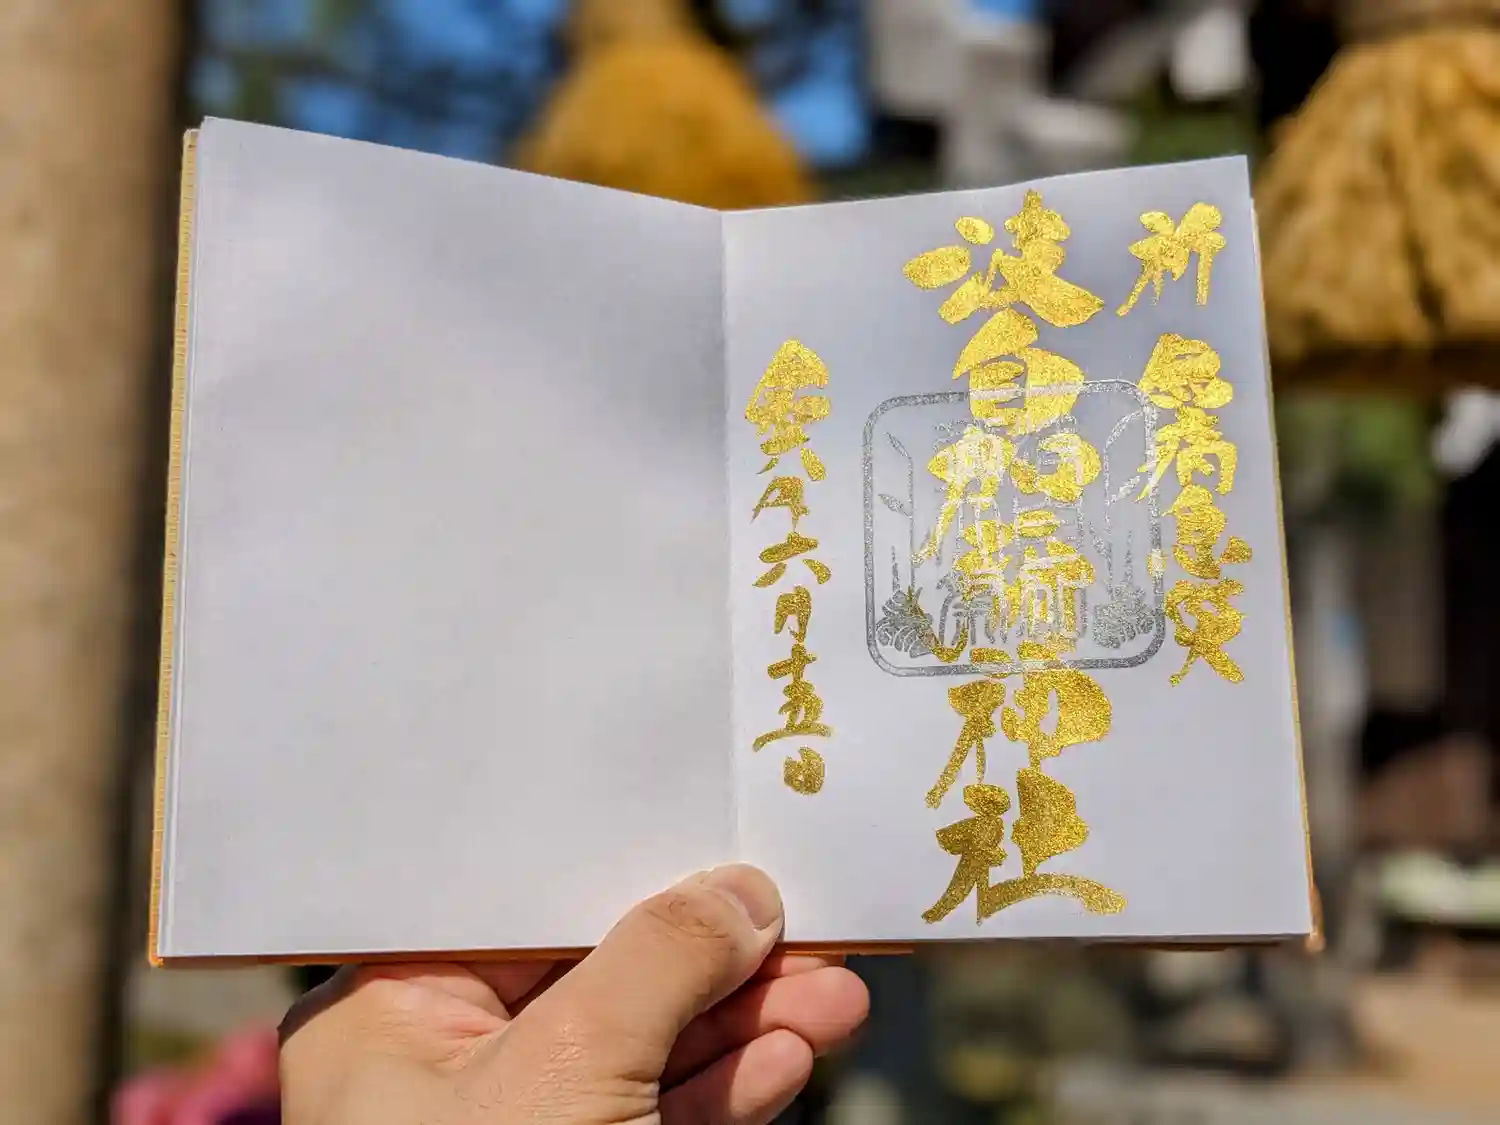 祈 無病息災
波自加彌神社
令和 年六月十五日